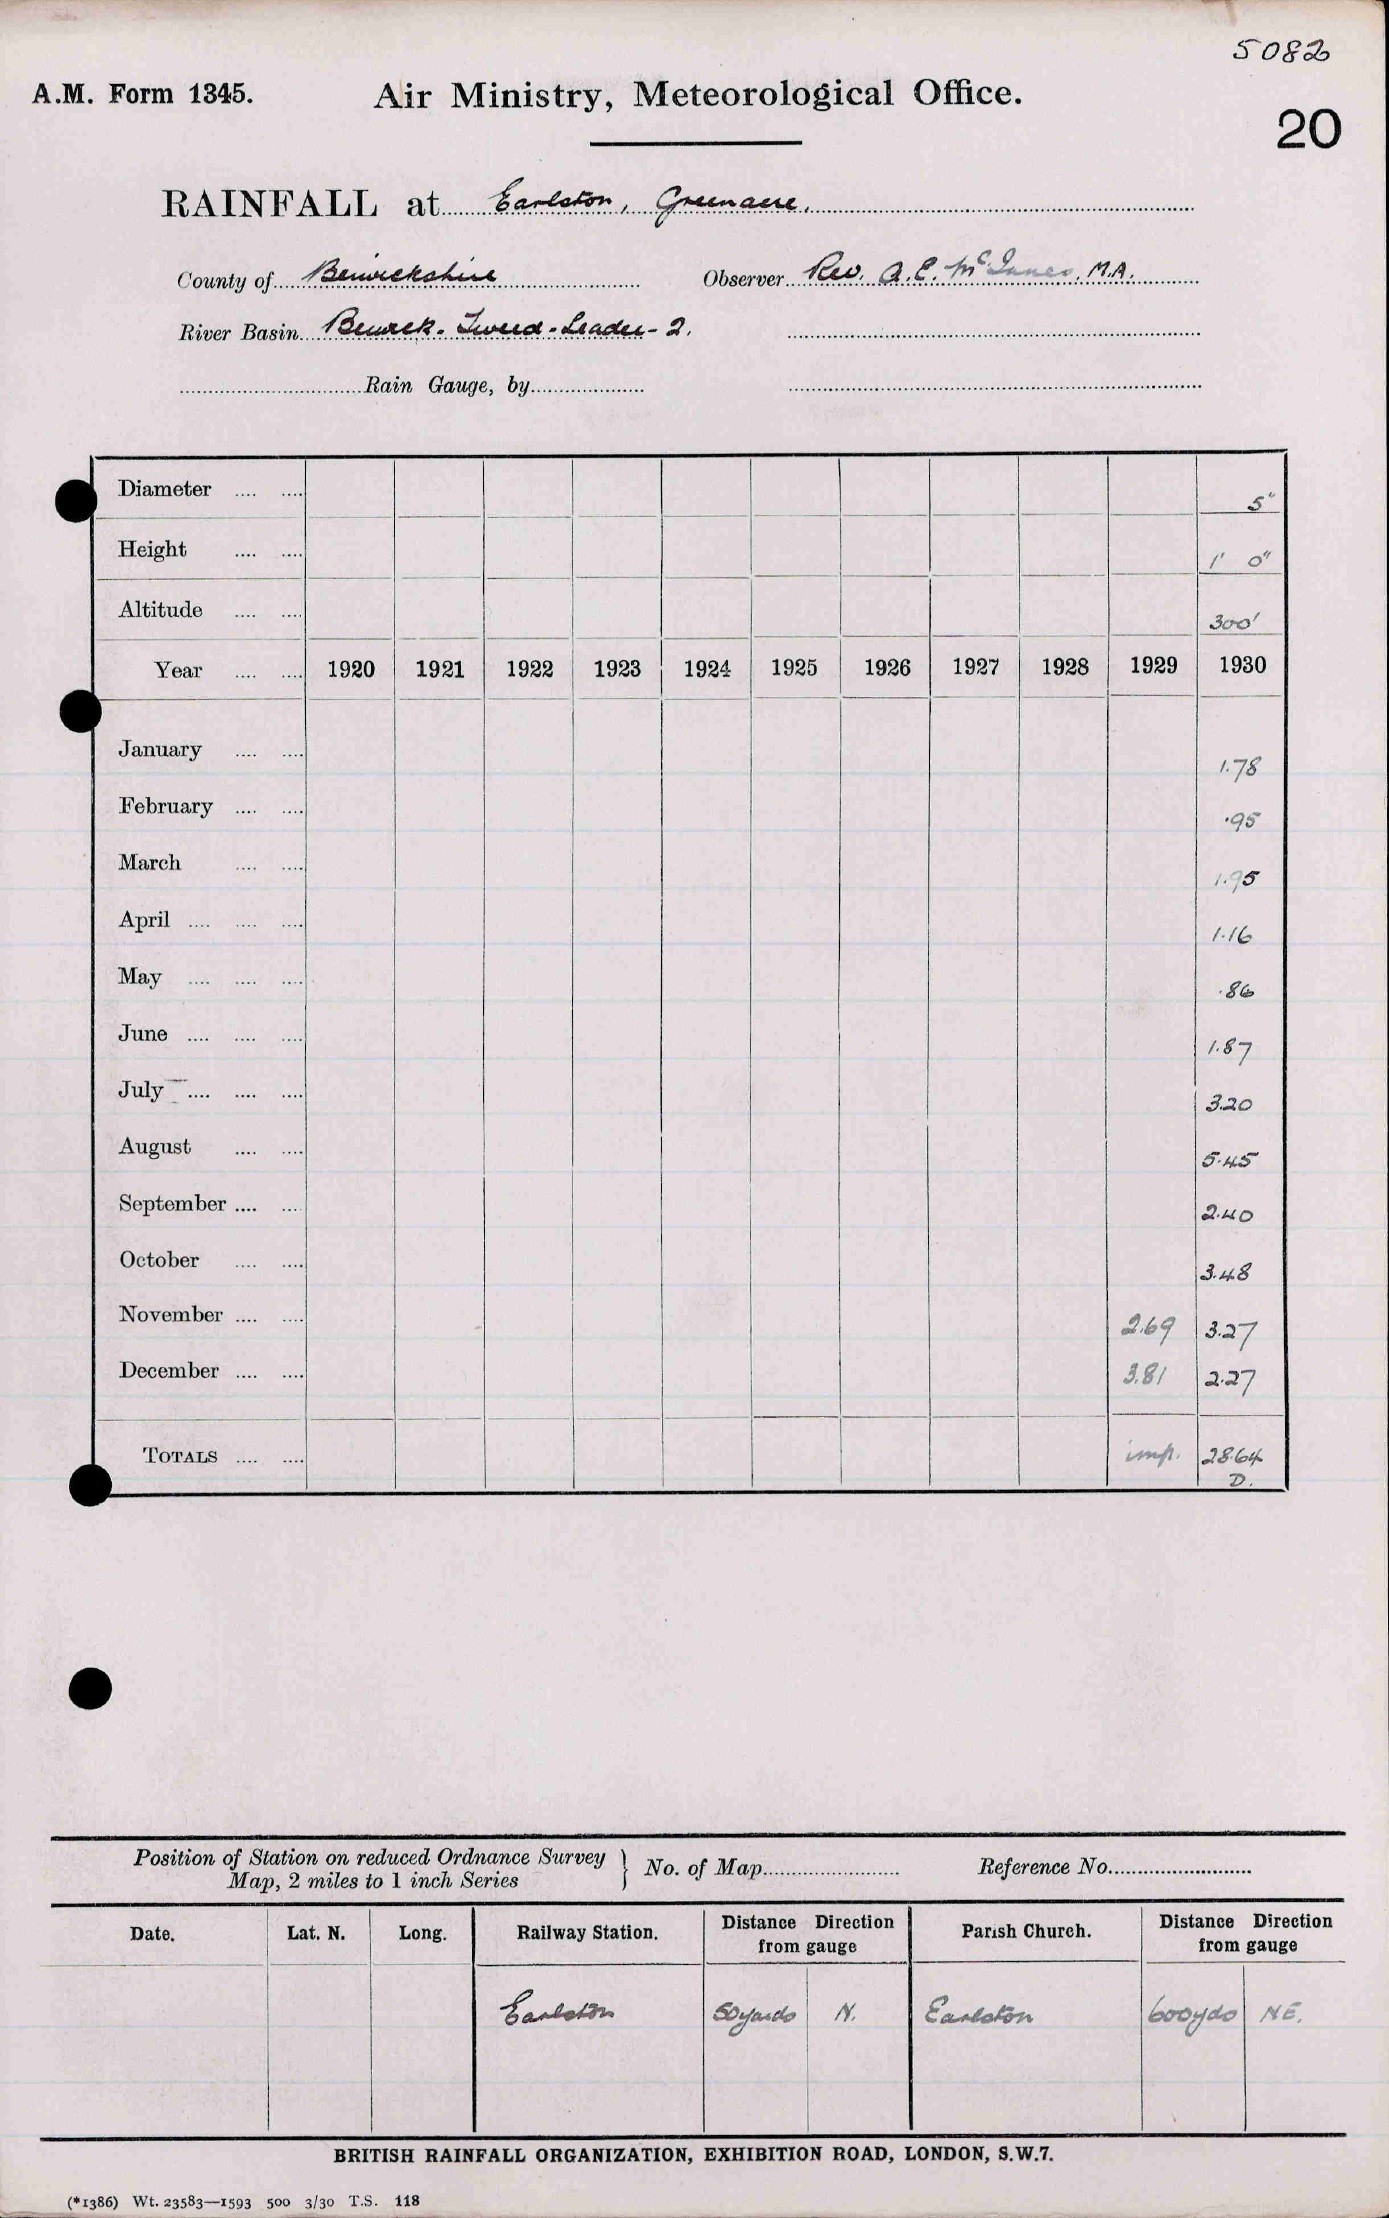 5082
A.M. Form 1345. Air Ministry, Meteorological Office.
20
RAINFALL at Earlston, Greenacre.
County of Berwickshire Observer Rev. A. E. McInnes, M.A.
River Basin Berwick-Tweed-Leader-2.
Rain Gauge, by
Diameter 5"
Height 1' 0"
Altitude 300'
Year 1920 1921 1922 1923 1924 1925 1926 1927 1928 1929 1930
January 1.78
February .95
March 1.95
April 1.16
May .86
June 1.87
July 3.20
August 5.45
September 2.40
October 3.48
November 2.69 3.27
December 3.81 2.27
TOTALS imp. 28.64
D.
Position of Station on reduced Ordnance Survey
Map, 2 miles to 1 inch Series } No. of Map Reference No.
Date. Lat. N. Long. Railway Station. Distance Direction from gauge Parish Church. Distance Direction from gauge
Earlston 50 yards N. Earlston 600 yds NE.
BRITISH RAINFALL ORGANIZATION, EXHIBITION ROAD, LONDON, S.W.7.
(*1386) Wt. 23583—1593 500 3/30 T.S. 118